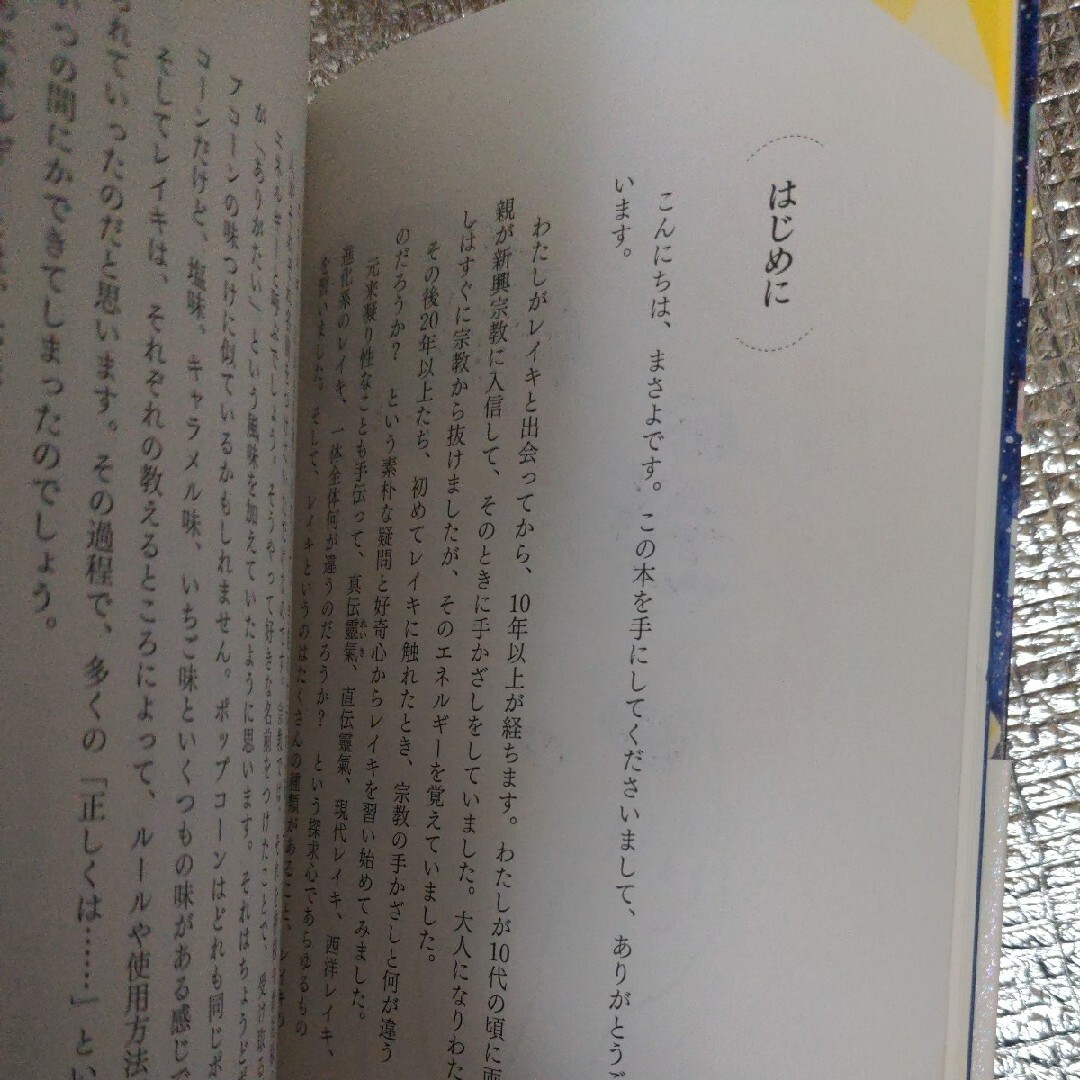 はじめに
こんにちは、まさよです。この本を手にしてくださいまして、ありがとうご
います。
わたしがレイキと出会ってから、10年以上が経ちます。わたしが10代の頃に両
親が新興宗教に入信して、そのときに手かざしをしていました。大人になりわた
しはすぐに宗教から抜けましたが、そのエネルギーを覚えていました。
その後20年以上たち、初めてレイキに触れたとき、宗教の手かざしと何が違う
のだろうか？　という素朴な疑問と好奇心からレイキを習い始めてみました。
元来凝り性なことも手伝って、真伝靈氣、直伝靈氣、現代レイキ、西洋レイキ、
れいき
進化系のレイキ、一体全体何が違うのだろうか？　という探求心であらゆるもの
を習いました。そして、レイキというのはたくさんの種類があること、レイキの
そうやって好きな名前をつけたことで、受け取る
が〈ありがたい〉という風味を加えていたように思います。それはちょうどポ
プコーンの味つけに似ているかもしれません。ポップコーンはどれも同じポ
コーンだけど、塩味、キャラメル味、いちご味といくつもの味がある感じで
そしてレイキは、それぞれの教えるところによって、ルールや使用方法
れていったのだと思います。その過程で、多くの「正しくは……」とい
つの間にかできてしまったのでしょう。